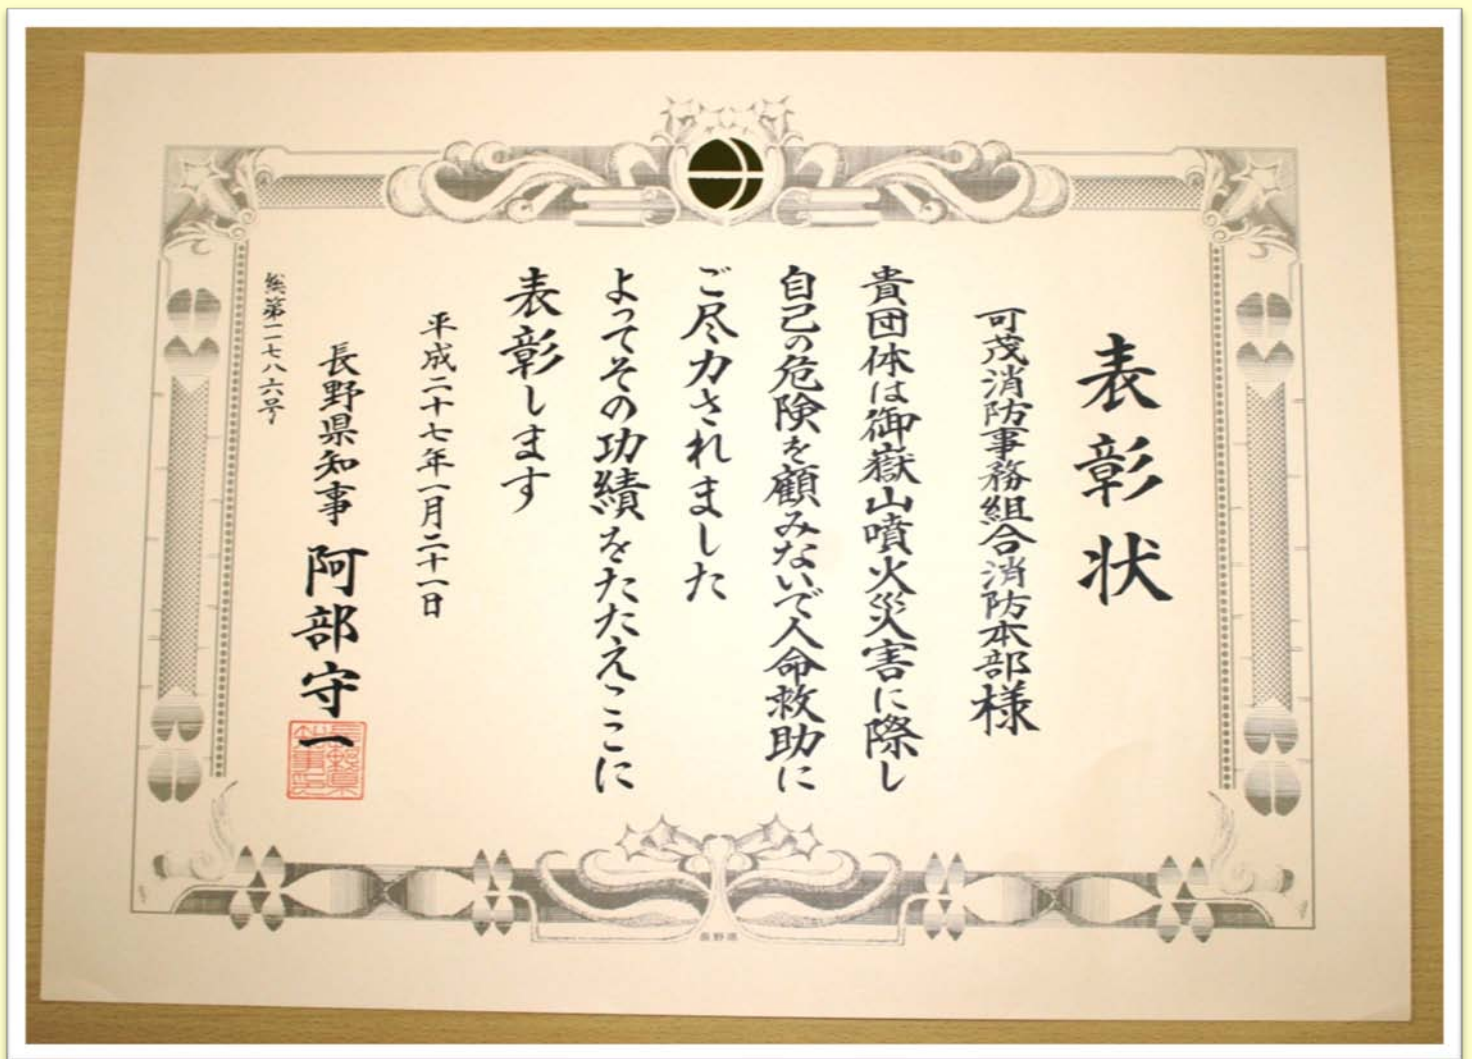 表彰状
可茂消防事務組合消防本部様
貴団体は御嶽山噴火災害に際し
自己の危険を顧みないで人命救助に
ご尽力されました
よってその功績をたたえここに
表彰します
平成二十七年一月二十一日
長野県知事 阿部守一
総第一七八六号
長野県知事印
長野県